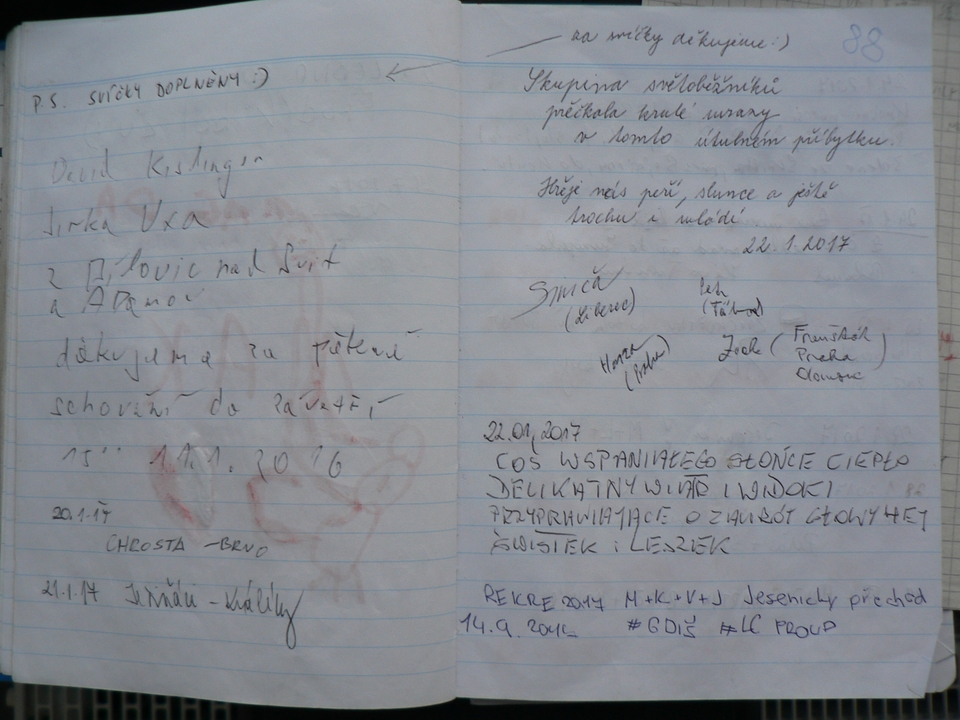 P.S. SVÍČKY DOPLNĚNY :)
David
Jirka Vxa
z Bílovic nad Svit
a Adamov
děkujeme za
schování do závětří
15°° 11.1.2016
20.1.17
CHROSTA - BRNO
21.1.17 - Králíky
88
za svíčky děkujeme :)
Skupina světoběžníků
přečkala kruté mrazy
v tomto útulném příbytku.
Hřeje nás peří, slunce a ještě
trochu i mládí
22.1.2017
(Liberec)
Petr
(Tábor)
Honza
(Praha)
(Praha
Olomouc)
22.01.2017
COŚ WSPANIAŁEGO SŁOŃCE CIEPŁO
DELIKATNY WIATR I WIDOKI
PRZYPRAWIAJĄCE O ZAWRÓT GŁOWY HEJ
ŚWISTEK i LESZEK
REKRE 2017 M+K+V+J Jesenický přechod
14.9.
#GDIŠ #LC PROUD